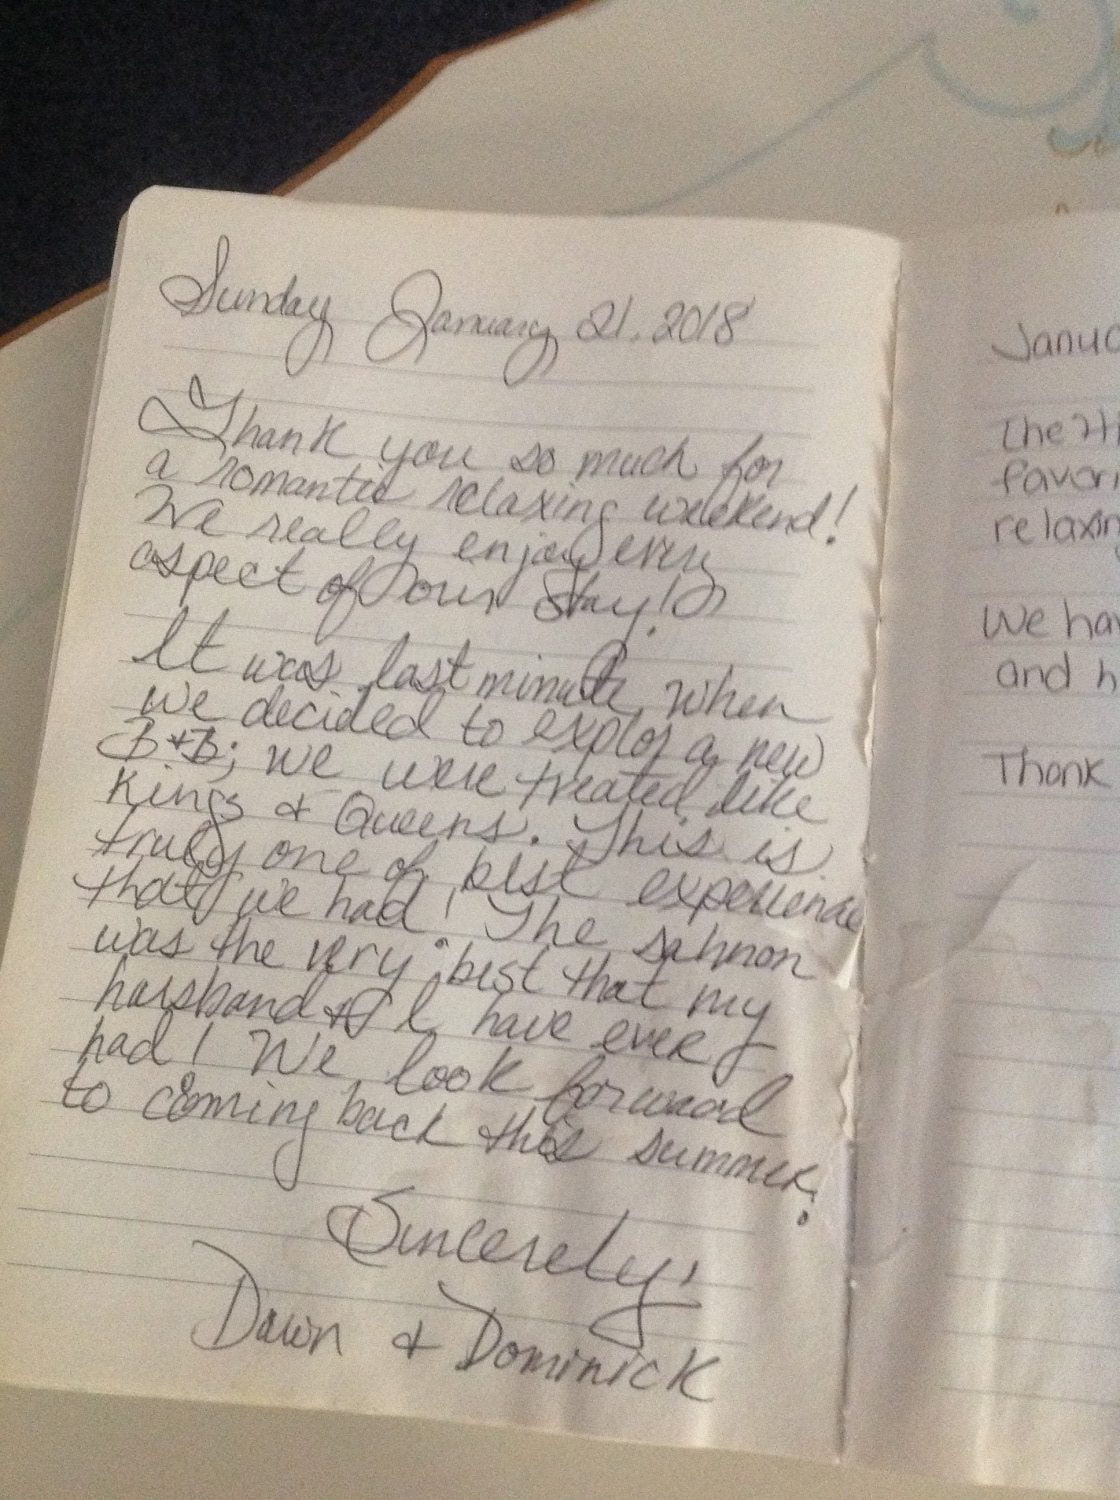 Sunday January 21, 2018
Thank you so much for
a romantic relaxing weekend!
We really enjoy every
aspect of our stay!
It was last minute when
we decided to explor a new
B+B; we were treated like
Kings & Queens. This is
truly one of best experience
that we had! The salmon
was the very best that my
husband & I have ever
had! We look forward
to coming back this summer!
Sincerely,
Dawn & Dominick
relaxin
We ha
and h
Thank